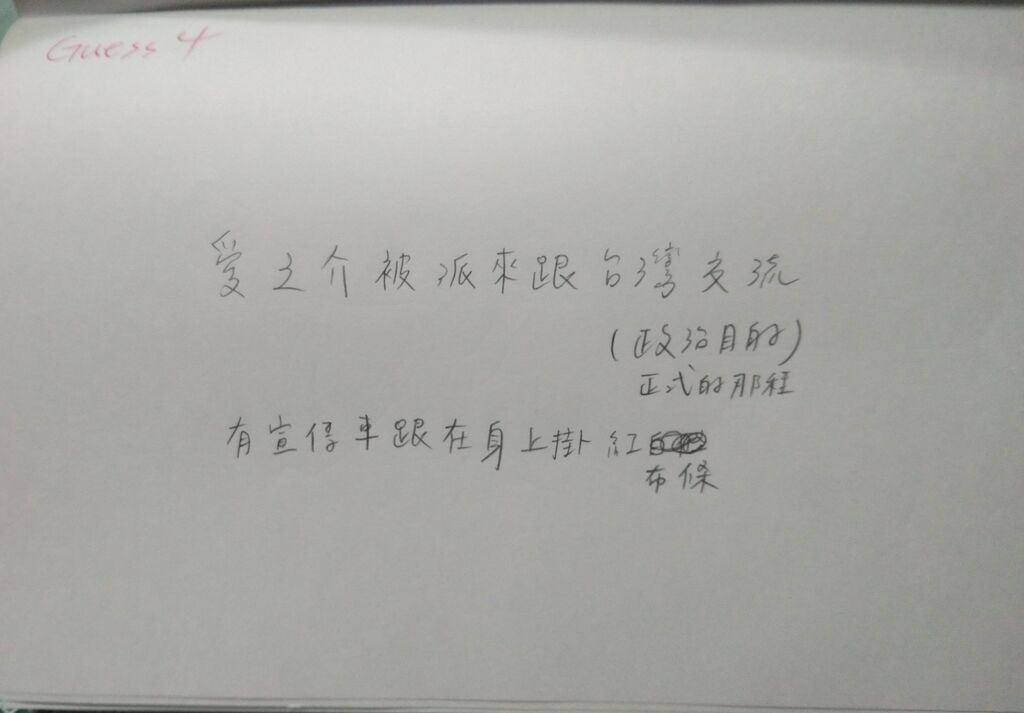 Guess 4
愛之介被派來跟台灣交流
(政治目的)
正式的那種
有宣傳車跟在身上掛紅
布條